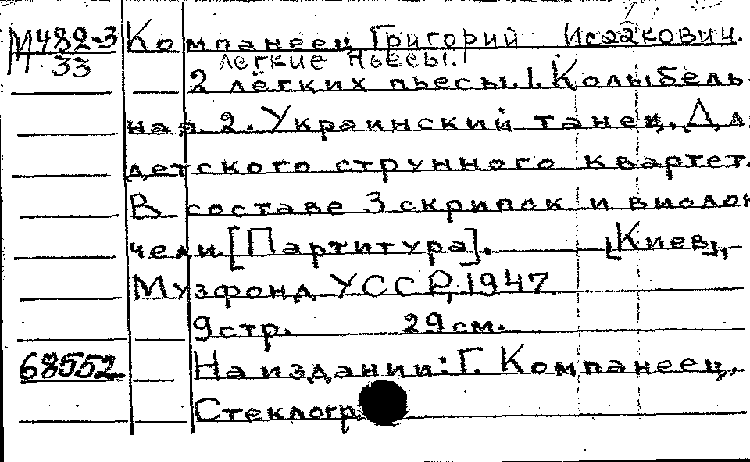 М482-3 Компанеец Григорий Исаакович.
33 Легкие пьесы.
2 лёгких пьесы. 1. Колыбель-
ная 2. Украинский танец. Для
детского струнного квартет.
В составе 3 скрипок и виолон
чели. [Партитура]. [Киев],
Музфонд УССР, 1947
9 стр. 29 см.
68552 На издании: Г. Компанеец.
Стеклогр